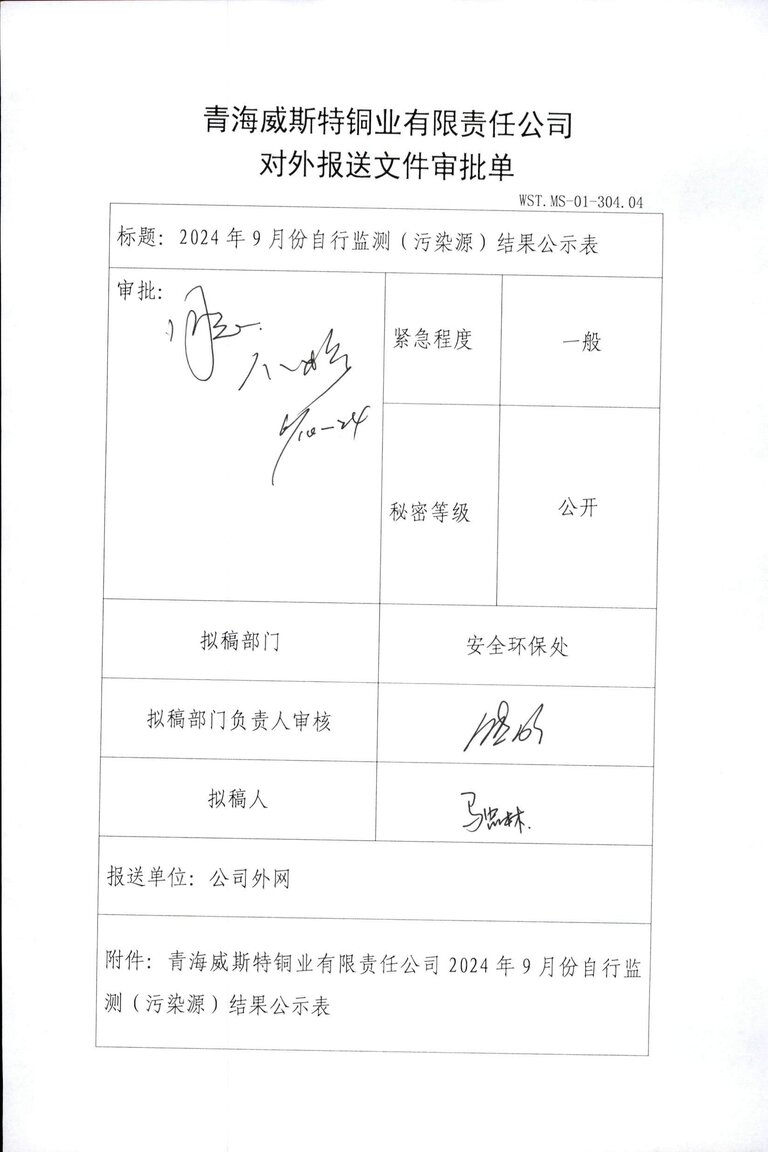 青海威斯特铜业有限责任公司
对外报送文件审批单
WST.MS-01-304.04
标题：2024年9月份自行监测（污染源）结果公示表
审批：
紧急程度
一般
秘密等级
公开
拟稿部门
安全环保处
拟稿部门负责人审核
拟稿人
马忠林.
报送单位：公司外网
附件：青海威斯特铜业有限责任公司2024年9月份自行监
测（污染源）结果公示表